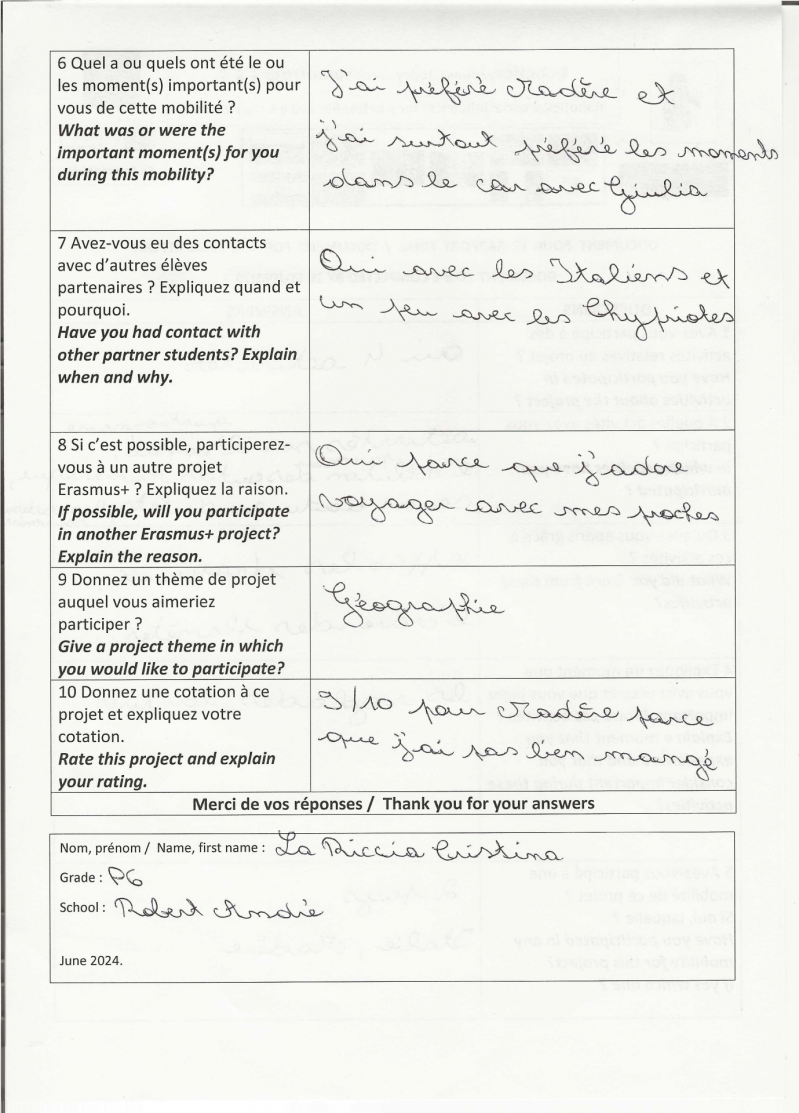 6 Quel a ou quels ont été le ou
les moment(s) important(s) pour
vous de cette mobilité ?
What was or were the
important moment(s) for you
during this mobility?
J'ai préféré Madère et
j'ai surtout préféré les moments
dans le car avec Giulia
7 Avez-vous eu des contacts
avec d'autres élèves
partenaires ? Expliquez quand et
pourquoi.
Have you had contact with
other partner students? Explain
when and why.
Oui avec les Italiens et
un peu avec les Chypriotes
8 Si c'est possible, participerez-
vous à un autre projet
Erasmus+ ? Expliquez la raison.
If possible, will you participate
in another Erasmus+ project?
Explain the reason.
Oui parce que j'adore
voyager avec mes proches
9 Donnez un thème de projet
auquel vous aimeriez
participer ?
Give a project theme in which
you would like to participate?
Géographie
10 Donnez une cotation à ce
projet et expliquez votre
cotation.
Rate this project and explain
your rating.
9/10 pour Madère parce
que j'ai pas bien mangé
Merci de vos réponses / Thank you for your answers
Nom, prénom / Name, first name : La Riccia Cristina
Grade : P6
School : Robert André
June 2024.